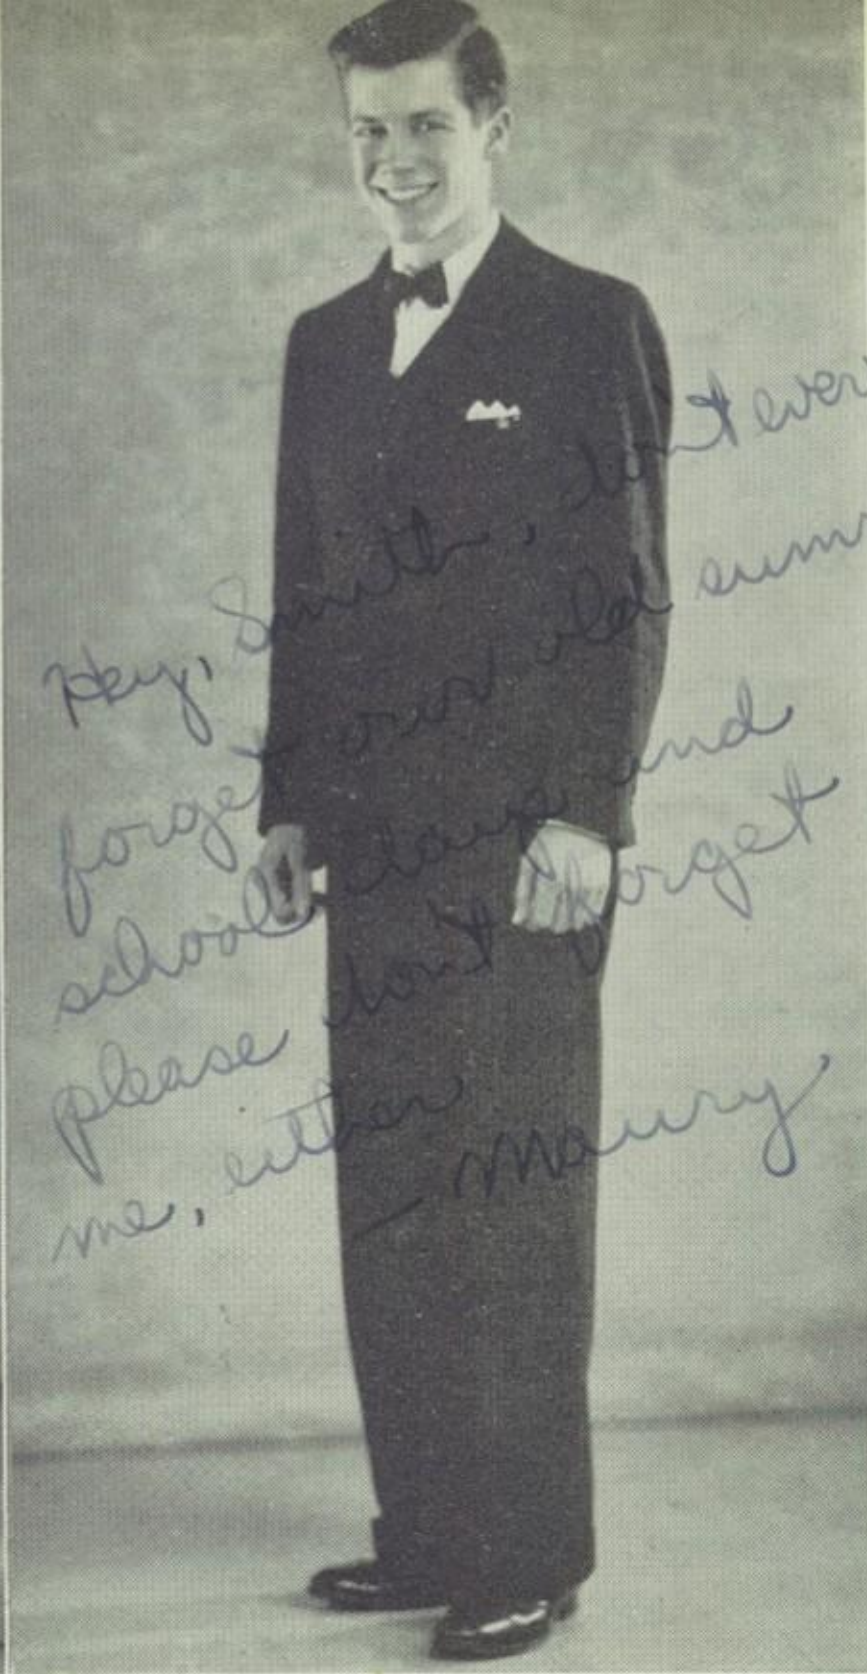 Hey, Smith, don't ever
forget our old sum
school days and
please don't forget
me, either
— Maury